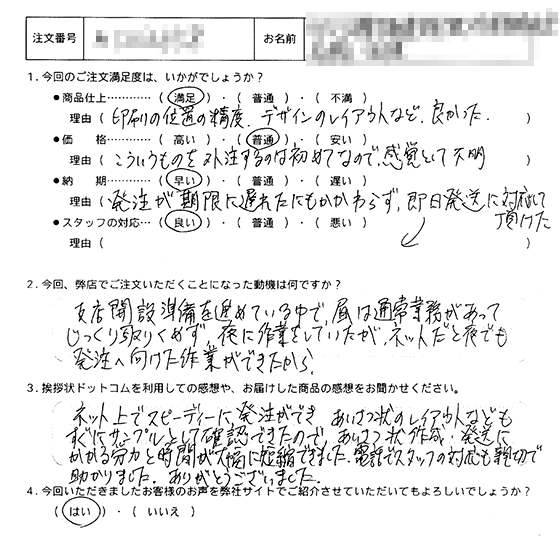 注文番号 お名前
1.今回のご注文満足度は、いかがでしょうか?
●商品仕上…………( 満足 )・( 普通 )・( 不満 )
理由( 印刷の位置の精度、デザインのレイアウトなど、良かった. )
●価 格…………( 高い )・( 普通 )・( 安い )
理由( こういうものを外注するのは初めてなので、感覚として不明 )
●納 期…………( 早い )・( 普通 )・( 遅い )
理由( 発注が期限に遅れたにもかかわらず、即日発送に対応して
頂けた )
●スタッフの対応…( 良い )・( 普通 )・( 悪い )
理由( )
2.今回、弊店でご注文いただくことになった動機は何ですか?
支店開設準備を進めている中で、昼は通常業務があって
じっくり取りくめず、夜に作業をしていたが、ネットだと夜でも
発注へ向けた作業ができたから.
3.挨拶状ドットコムを利用しての感想や、お届けした商品の感想をお聞かせください。
ネット上でスピーディーに発注ができ あいさつ状のレイアウトなども
すぐにサンプルとして確認できたので、あいさつ状作成・発送に
かかる労力と時間が大幅に短縮できました.電話でスタッフの対応も親切で
助かりました. ありがとうございました.
4.今回いただきましたお客様のお声を弊社サイトでご紹介させていただいてもよろしいでしょうか?
( はい )・( いいえ )